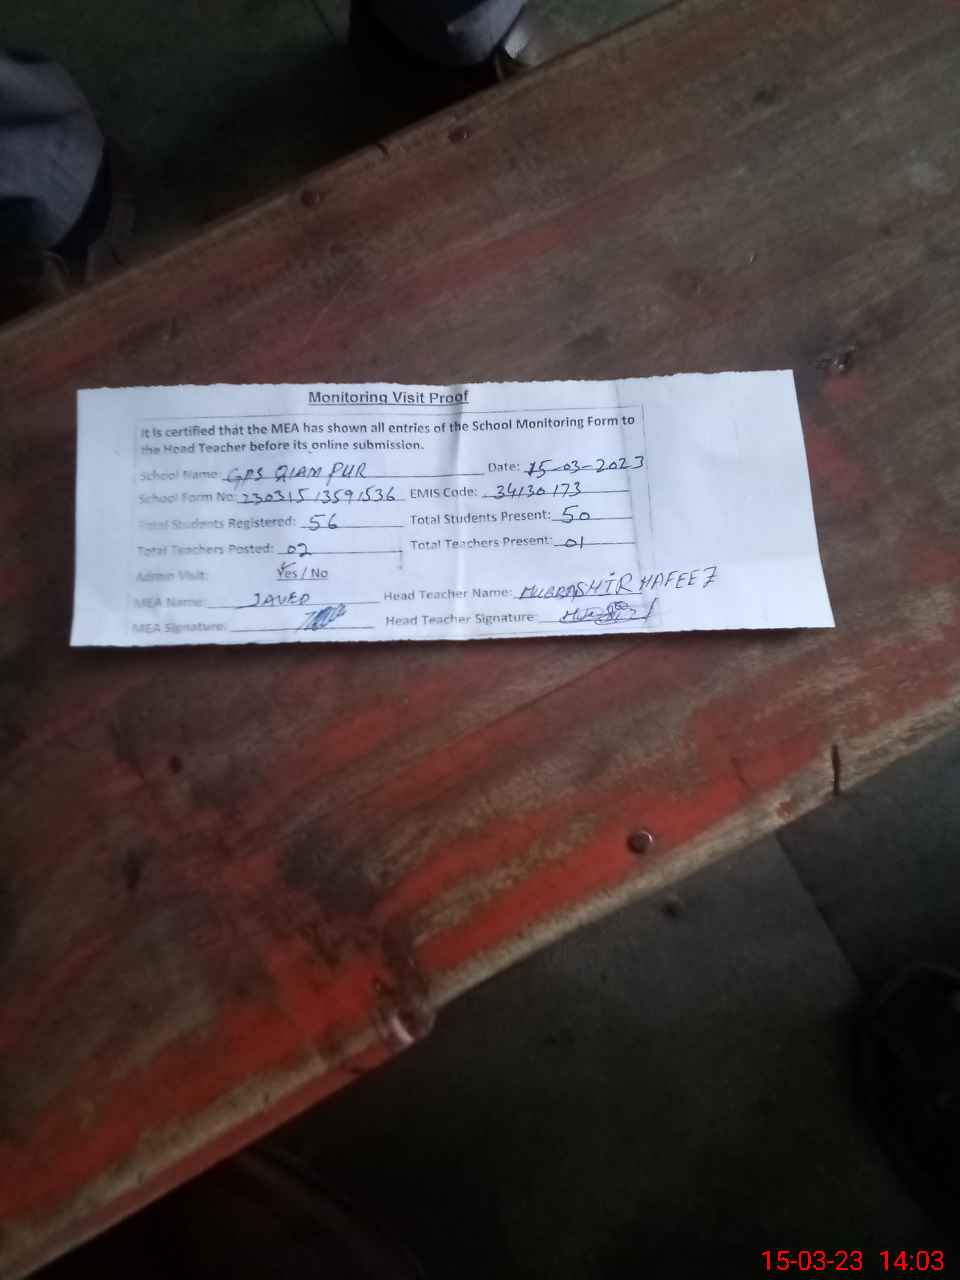 Monitoring Visit Proof
It is certified that the MEA has shown all entries of the School Monitoring Form to
the Head Teacher before its online submission.
School Name: GPS QIAM PUR Date: 15-03-2023
School Form No: 23031513591536 EMIS Code: 34130173
Total Students Registered: 56 Total Students Present: 50
Total Teachers Posted: 02 Total Teachers Present: 01
Admin Visit: Yes / No
MEA Name: JAVED Head Teacher Name: MUBRASHIR HAFEEZ
MEA Signature: Head Teacher Signature:
15-03-23 14:03